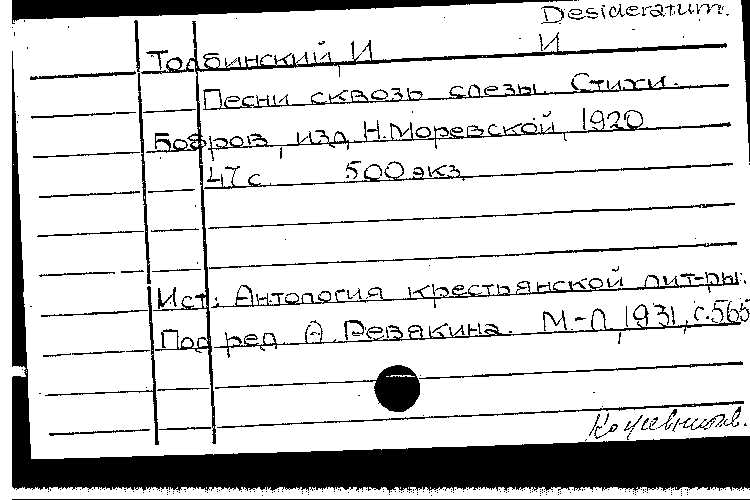 Desideratum.
И
Толбинский, И
Песни сквозь слезы. Стихи.
Бобров, изд. Н. Моревской, 1920
47 с. 500 экз.
Ист.: Антология крестьянской лит-ры.
Под ред. А. Ревякина. М-Л, 1931, с. 565
Кожевников.